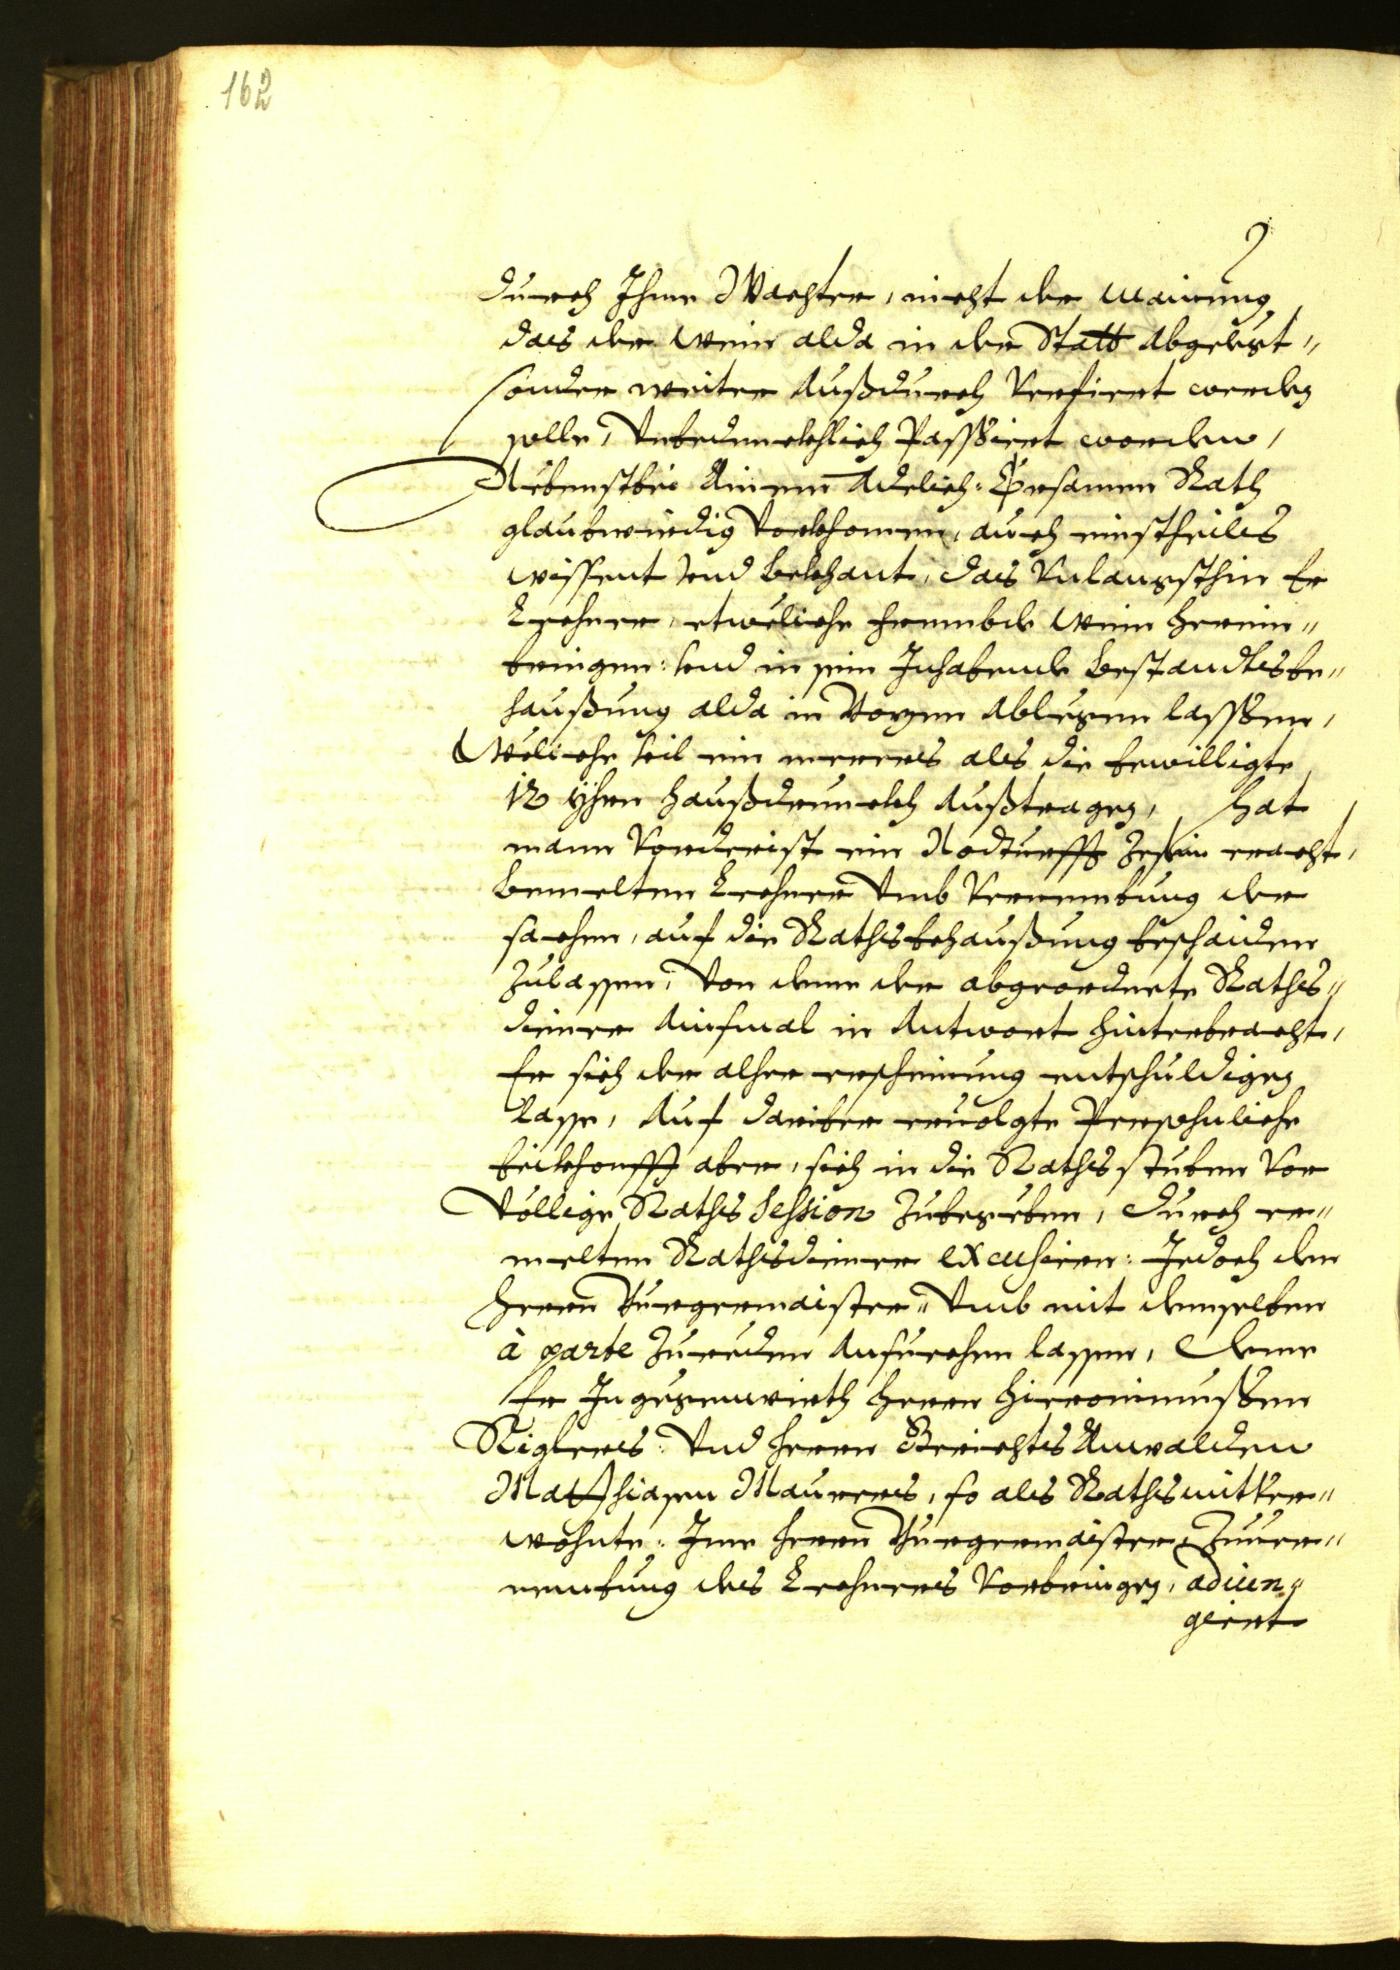 162
durch Ihme Wachter, nicht der mainung
das der Wein alda in der Statt abgelegt,,
sonder weiter außdurch verfiert werden
solle, Unbedencklich Passiert worden,
Nebenstbei Ainem Adelich: Ersamen Rath
glaubwirdig vorkhomen, auch einstheils
wissent und bekhant, das Unlangsthin Er
Lechner, etweliche frembde Wein herein,,
bringen: und in sein Inhabende bestandtsbe,,
haußung alda in Bozen ablegen lassen,
Weliche vil ein mereres als die bewilligte
12 Yhrn haußdrunckh außtragen, hat
mann vorderist ein Nodturfft zesein eracht,
bemelten Lechner umb vernembung der
sachen, auf die Rathsbehaußung beschaiden
zulassen, von deme der abgeordnete Raths,,
diener Ainsmal in Antwort hinterbracht,
Er sich der alher erscheinung entschuldigen
lasse, Auf dariber ervolgte Persohnliche
beikhonfft aber, sich in die Rathsstuben vor
völlige Raths Session zubegeben, durch er,,
melten Rathsdiener excusiern: Jedoch den
Herrn Burgermaister,, umb mit demselben
à parte zureden ansuechen lassen, Deme
Er Ingegenwirth Herrn Hieronimussen
Riglers: Und Herrn Gerichts Anwalden
Matthiasen Maurers, so als Rathsmitver,,
wohnte: Ime Herrn Burgermaister, zuver,,
nembung des Lechners vorbringen, adiun,,
giert